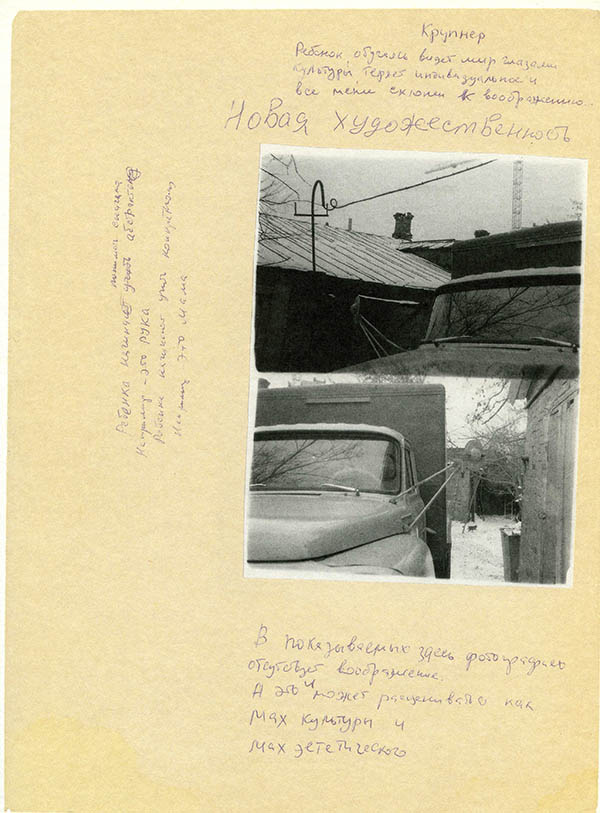 Крупнер
Ребенок обучаясь видет мир глазами
культуры теряет индивидуальное и
все менее склонен к воображению...
Новая художественность
Ребёнка начинают учить абстрактно
Например - это рука
Ребёнка начинают учить конкретному
это мама
В показываемых здесь фотографиях
отсутствует воображение.
А это и может расцениваться как
мах культуры и
мах эстетического